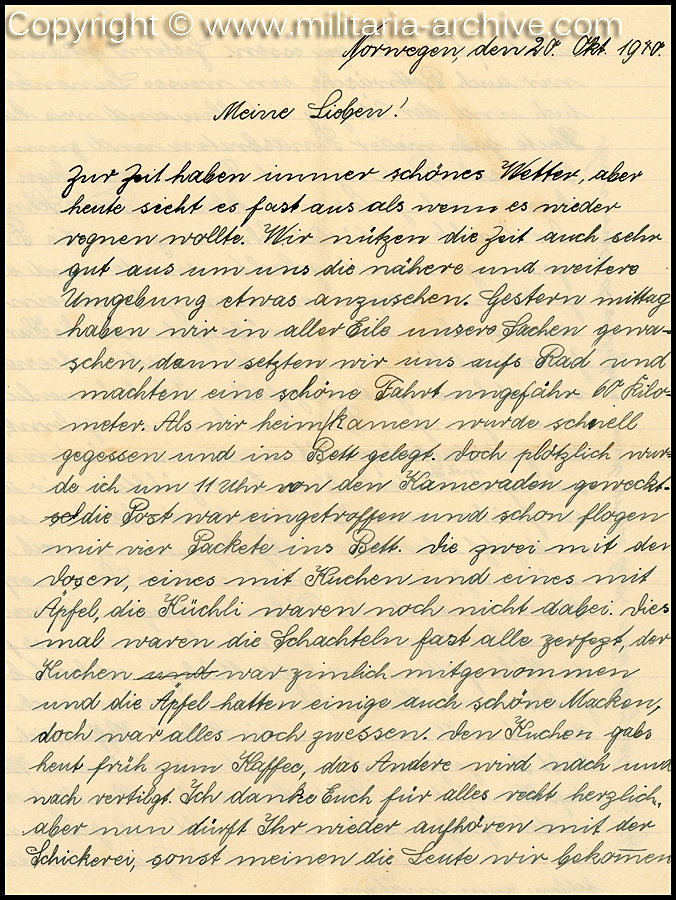 Copyright © www.militaria-archive.com
Norwegen, den 20. Okt. 1940.
Meine Lieben!
Zur Zeit haben immer schönes Wetter, aber
heute sieht es fast aus als wenn es wieder
regnen wollte. Wir nützen die Zeit auch sehr
gut aus um uns die nähere und weitere
Umgebung etwas anzusehen. Gestern mittag
haben wir in aller Eile unsere Sachen gewa-
schen, dann setzten wir uns aufs Rad und
machten eine schöne Fahrt ungefähr 60 Kilo-
meter. Als wir heim kamen wurde schnell
gegessen und ins Bett gelegt. Doch plötzlich wur-
de ich um 11 Uhr von den Kameraden geweckt.
die Post war eingetroffen und schon flogen
mir vier Packete ins Bett. Die zwei mit den
Dosen, eines mit Kuchen und eines mit
Äpfel, die Küchli waren noch nicht dabei. Dies
mal waren die Schachteln fast alle zerfezt, der
Kuchen und war zimlich mitgenommen
und die Äpfel hatten einige auch schöne Macken,
doch war alles noch zuessen. Den Kuchen gabs
heut früh zum Kaffee, das Andere wird nach und
nach vertilgt. Ich danke Euch für alles recht herzlich,
aber nun dürft Ihr wieder aufhören mit der
Schickerei, sonst meinen die Leute wir bekom̅en